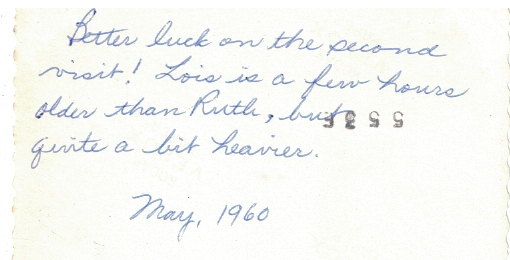 Better luck on the second
visit! Lois is a few hours
older than Ruth, but
quite a bit heavier.
May, 1960